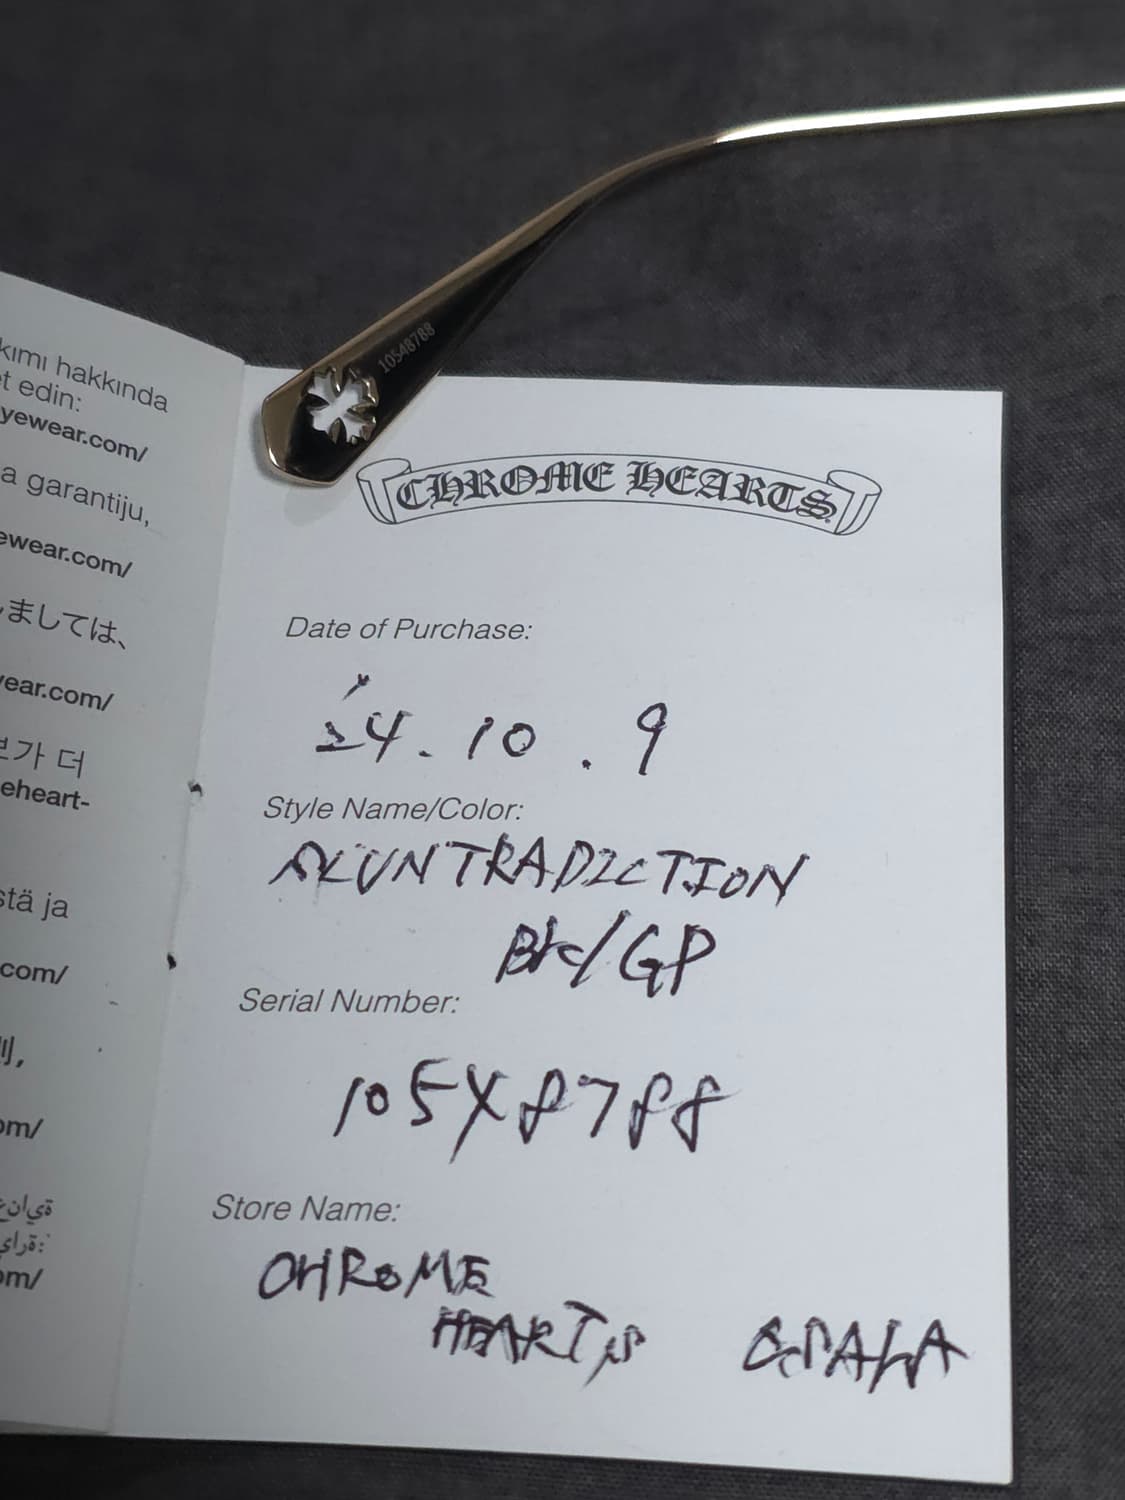 kımı hakkında
t edin:
yewear.com/
a garantiju,
ewear.com/
しましては、
ear.com/
가 더
eheart-
stä ja
com/
om/
om/
10548788
CHROME HEARTS
Date of Purchase:
'24.10.9
Style Name/Color:
SLUNTRADICTION
BK/GP
Serial Number:
10548788
Store Name:
CHROME
HEARTS OSAKA